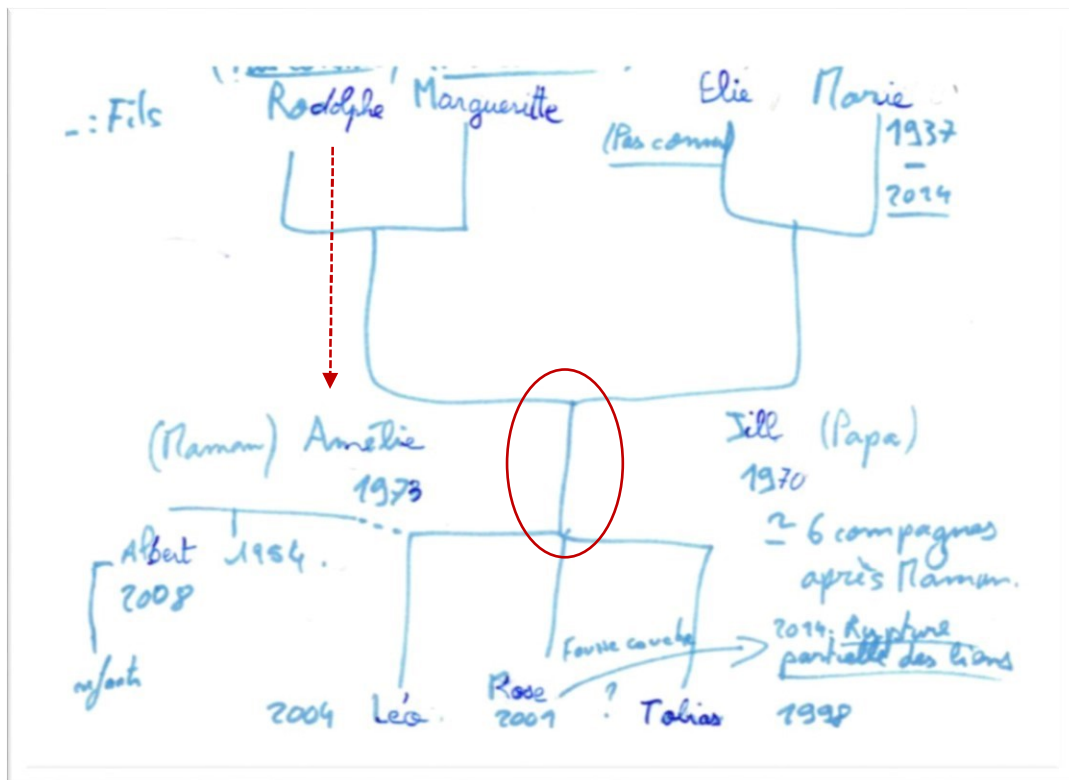 - : Fils
Rodolphe
Margueritte
Elie
Marie
(Pas connu)
1937
-
2014
(Maman) Amélie
1973
Jill (Papa)
1970
~ 6 compagnes
après Maman.
Albert 1954.
2008
Fausse couche
2014: Rupture
partielle des liens
2004 Léo.
Rose
2001
?
Tobias
1998